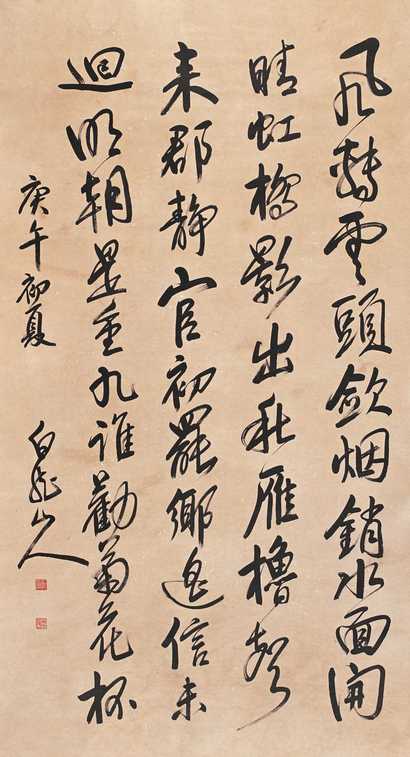 風轉雲頭歛烟銷水面開
晴虹橋影出秋雁櫓聲
来郡靜官初罷鄉遥信未
迴明朝是重九誰勸菊花杯
庚午初夏
白龍山人